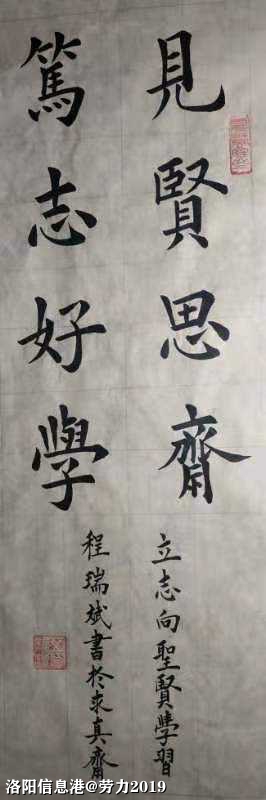 見賢思齊
篤志好學
立志向聖賢學習
程瑞斌書於求真齋
洛阳信息港@劳力2019